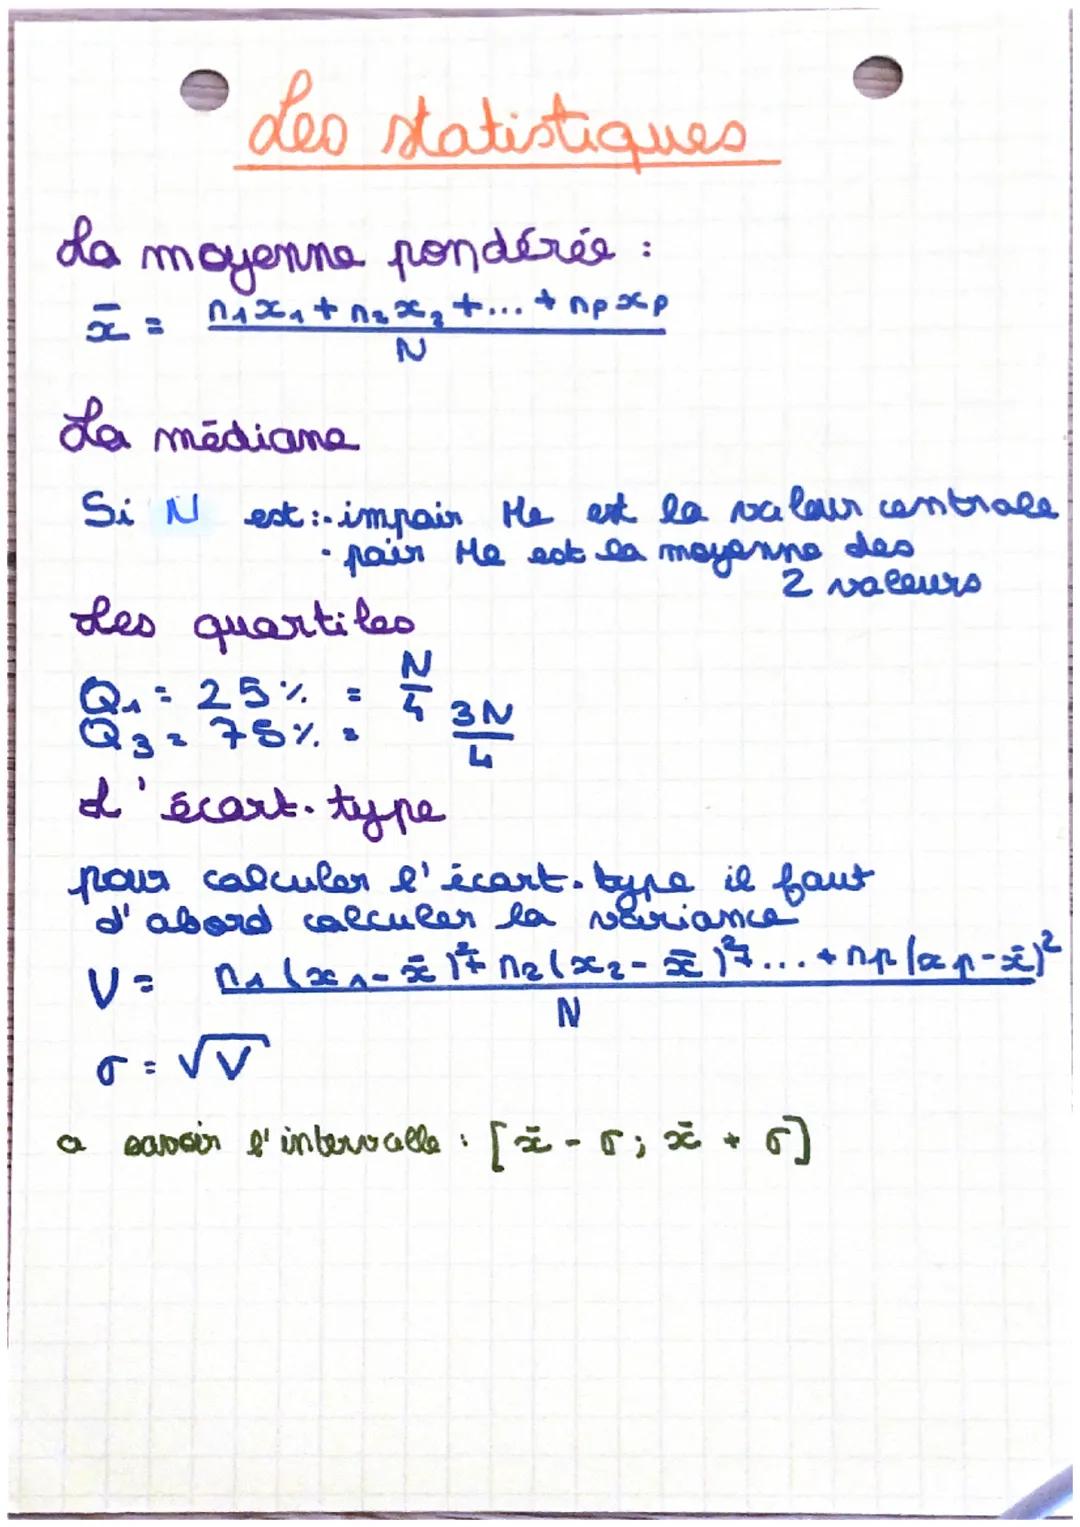 Les statistiques
La moyenne pondérée :
x̄ = (n₁x₁ + n₂x₂ + ... + nₚxₚ) / N
La médiane
Si N est : - impair Me est la valeur centrale
- pair Me est la moyenne des
2 valeurs
Les quartiles
Q₁ = 25% = N/4
Q₃ = 75% = 3N/4
L'écart-type
pour calculer l'écart-type il faut
d'abord calculer la variance
V = (n₁(x₁ - x̄)² + n₂(x₂ - x̄)² + ... + nₚ(xₚ - x̄)²) / N
σ = √V
a savoir l'intervalle : [x̄ - σ ; x̄ + σ]